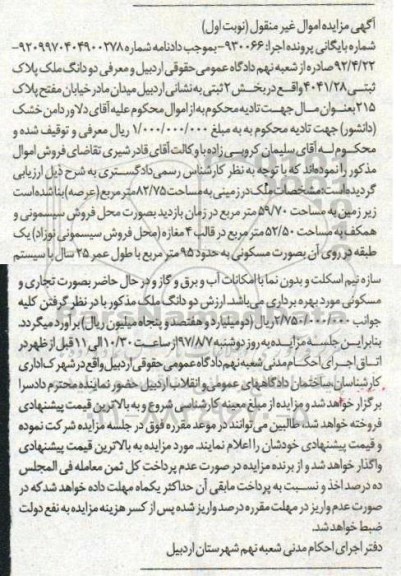 آگهی مزایده اموال غیر منقول (نوبت اول)
شماره بایگانی پرونده اجرا: ۹۳۰۰۶۶- بموجب دادنامه شماره ۹۲۰۹۹۷۰۴۰۴۹۰۰۲۷۸-
۹۲/۴/۲۲ صادره از شعبه نهم دادگاه عمومی حقوقی اردبیل و معرفی دو دانگ ملک پلاک
ثبتی ۴۰۴۱/۲۸ واقع در بخش ۲ ثبتی به نشانی اردبیل میدان مادر خیابان مفتح پلاک
۲۱۵ بعنوان مال جهت تادیه محکوم به از اموال محکوم علیه آقای دلاور دامن خشک
(دانشور) جهت تادیه محکوم به به مبلغ ۱/۰۰۰/۰۰۰/۰۰۰ ریال معرفی و توقیف شده و
محکوم له آقای سلیمان کروبی زاده با وکالت آقای قادر شیری تقاضای فروش اموال
مذکور را نموده‌اند که با توجه به نظر کارشناس رسمی دادگستری به شرح ذیل ارزیابی
گردیده است: مشخصات ملک در زمینی به مساحت ۸۲/۷۵ متر مربع (عرصه) بنا شده است
زیر زمین به مساحت ۵۹/۷۰ متر مربع در زمان بازدید بصورت محل فروش سیسمونی و
همکف به مساحت ۵۲/۵۰ متر مربع در قالب ۴ مغازه (محل فروش سیسمونی نوزاد) یک
طبقه در روی آن بصورت مسکونی به حدود ۹۵ متر مربع با طول عمر ۲۵ سال با سیستم
سازه نیم اسکلت و بدون نما با امکانات آب و برق و گاز و در حال حاضر بصورت تجاری و
مسکونی مورد بهره برداری می‌باشد. ارزش دو دانگ ملک مذکور با در نظر گرفتن کلیه
جوانب ریال (دو میلیارد و هفتصد و پنجاه میلیون ریال) برآورد میگردد.
بنابراین جلسه مزایده به روز دوشنبه ۹۷/۸/۷ از ساعت ۱۰/۳۰ الی ۱۱ قبل از ظهر در
اتاق اجرای احکام مدنی شعبه نهم دادگاه عمومی حقوقی اردبیل واقع در شهرک اداری
کارشناسان ساختمان دادگاههای عمومی و انقلاب اردبیل حضور نماینده محترم دادسرا
برگزار خواهد شد و مزایده از مبلغ معینه کارشناسی شروع و به بالاترین قیمت پیشنهادی
فروخته خواهد شد، طالبین می‌توانند در موعد مقرره فوق در جلسه مزایده شرکت نموده
و قیمت پیشنهادی خودشان را اعلام نمایند. مورد مزایده به بالاترین قیمت پیشنهادی
واگذار خواهد شد و از برنده مزایده در صورت عدم پرداخت کل ثمن معامله فی المجلس
ده درصد اخذ و نسبت به پرداخت مابقی آن حداکثر یکماه مهلت داده خواهد شد که در
صورت عدم واریز در مهلت مقرره درصد واریز شده پس از کسر هزینه مزایده به نفع دولت
ضبط خواهد شد.
دفتر اجرای احکام مدنی شعبه نهم شهرستان اردبیل